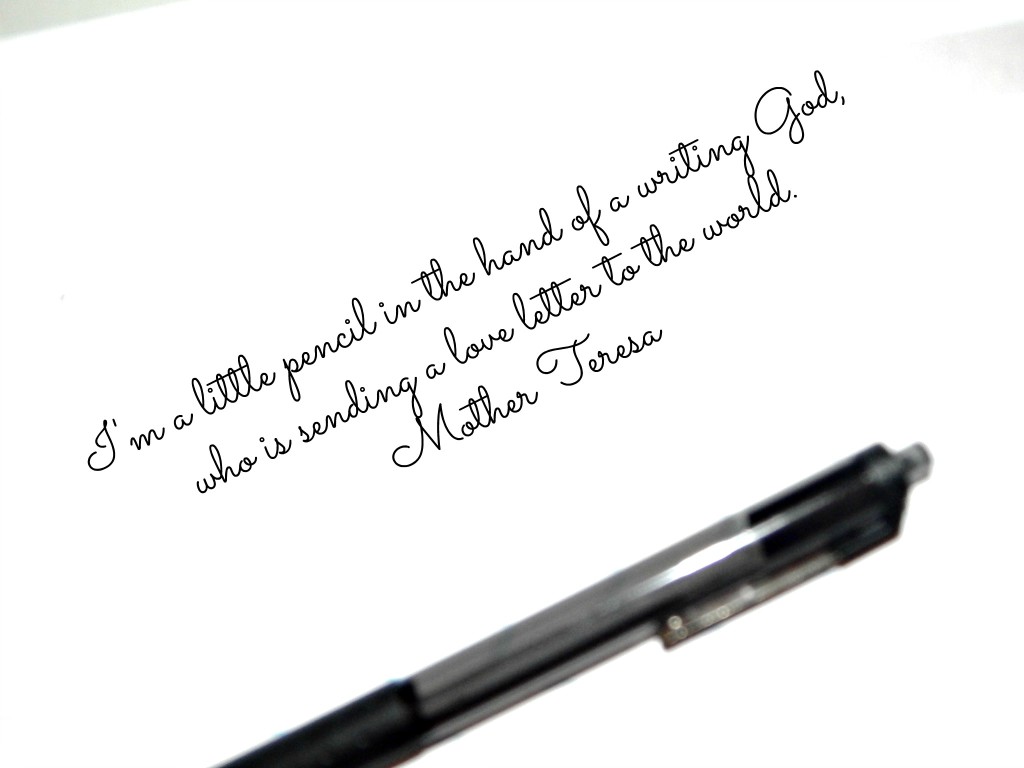 I'm a little pencil in the hand of a writing God,
who is sending a love letter to the world.
Mother Teresa